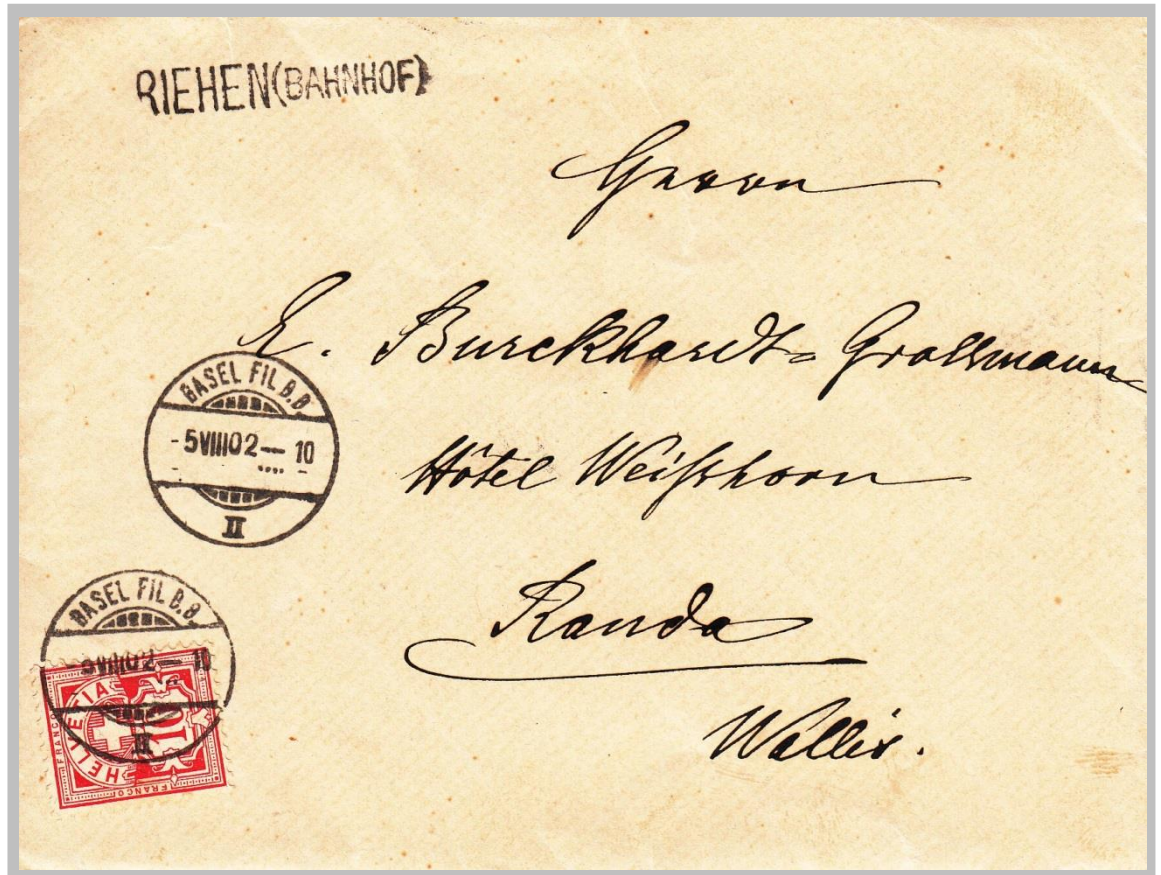 RIEHEN(BAHNHOF)
Herrn
E. Burckhardt-Grossmann
Hôtel Weißhorn
Randa
Wallis.
BASEL FIL B.B
-5VIII02-10
II
BASEL FIL B.B.
5VIII02-10
II
HELVETIA
10
FRANCO
FRANCO